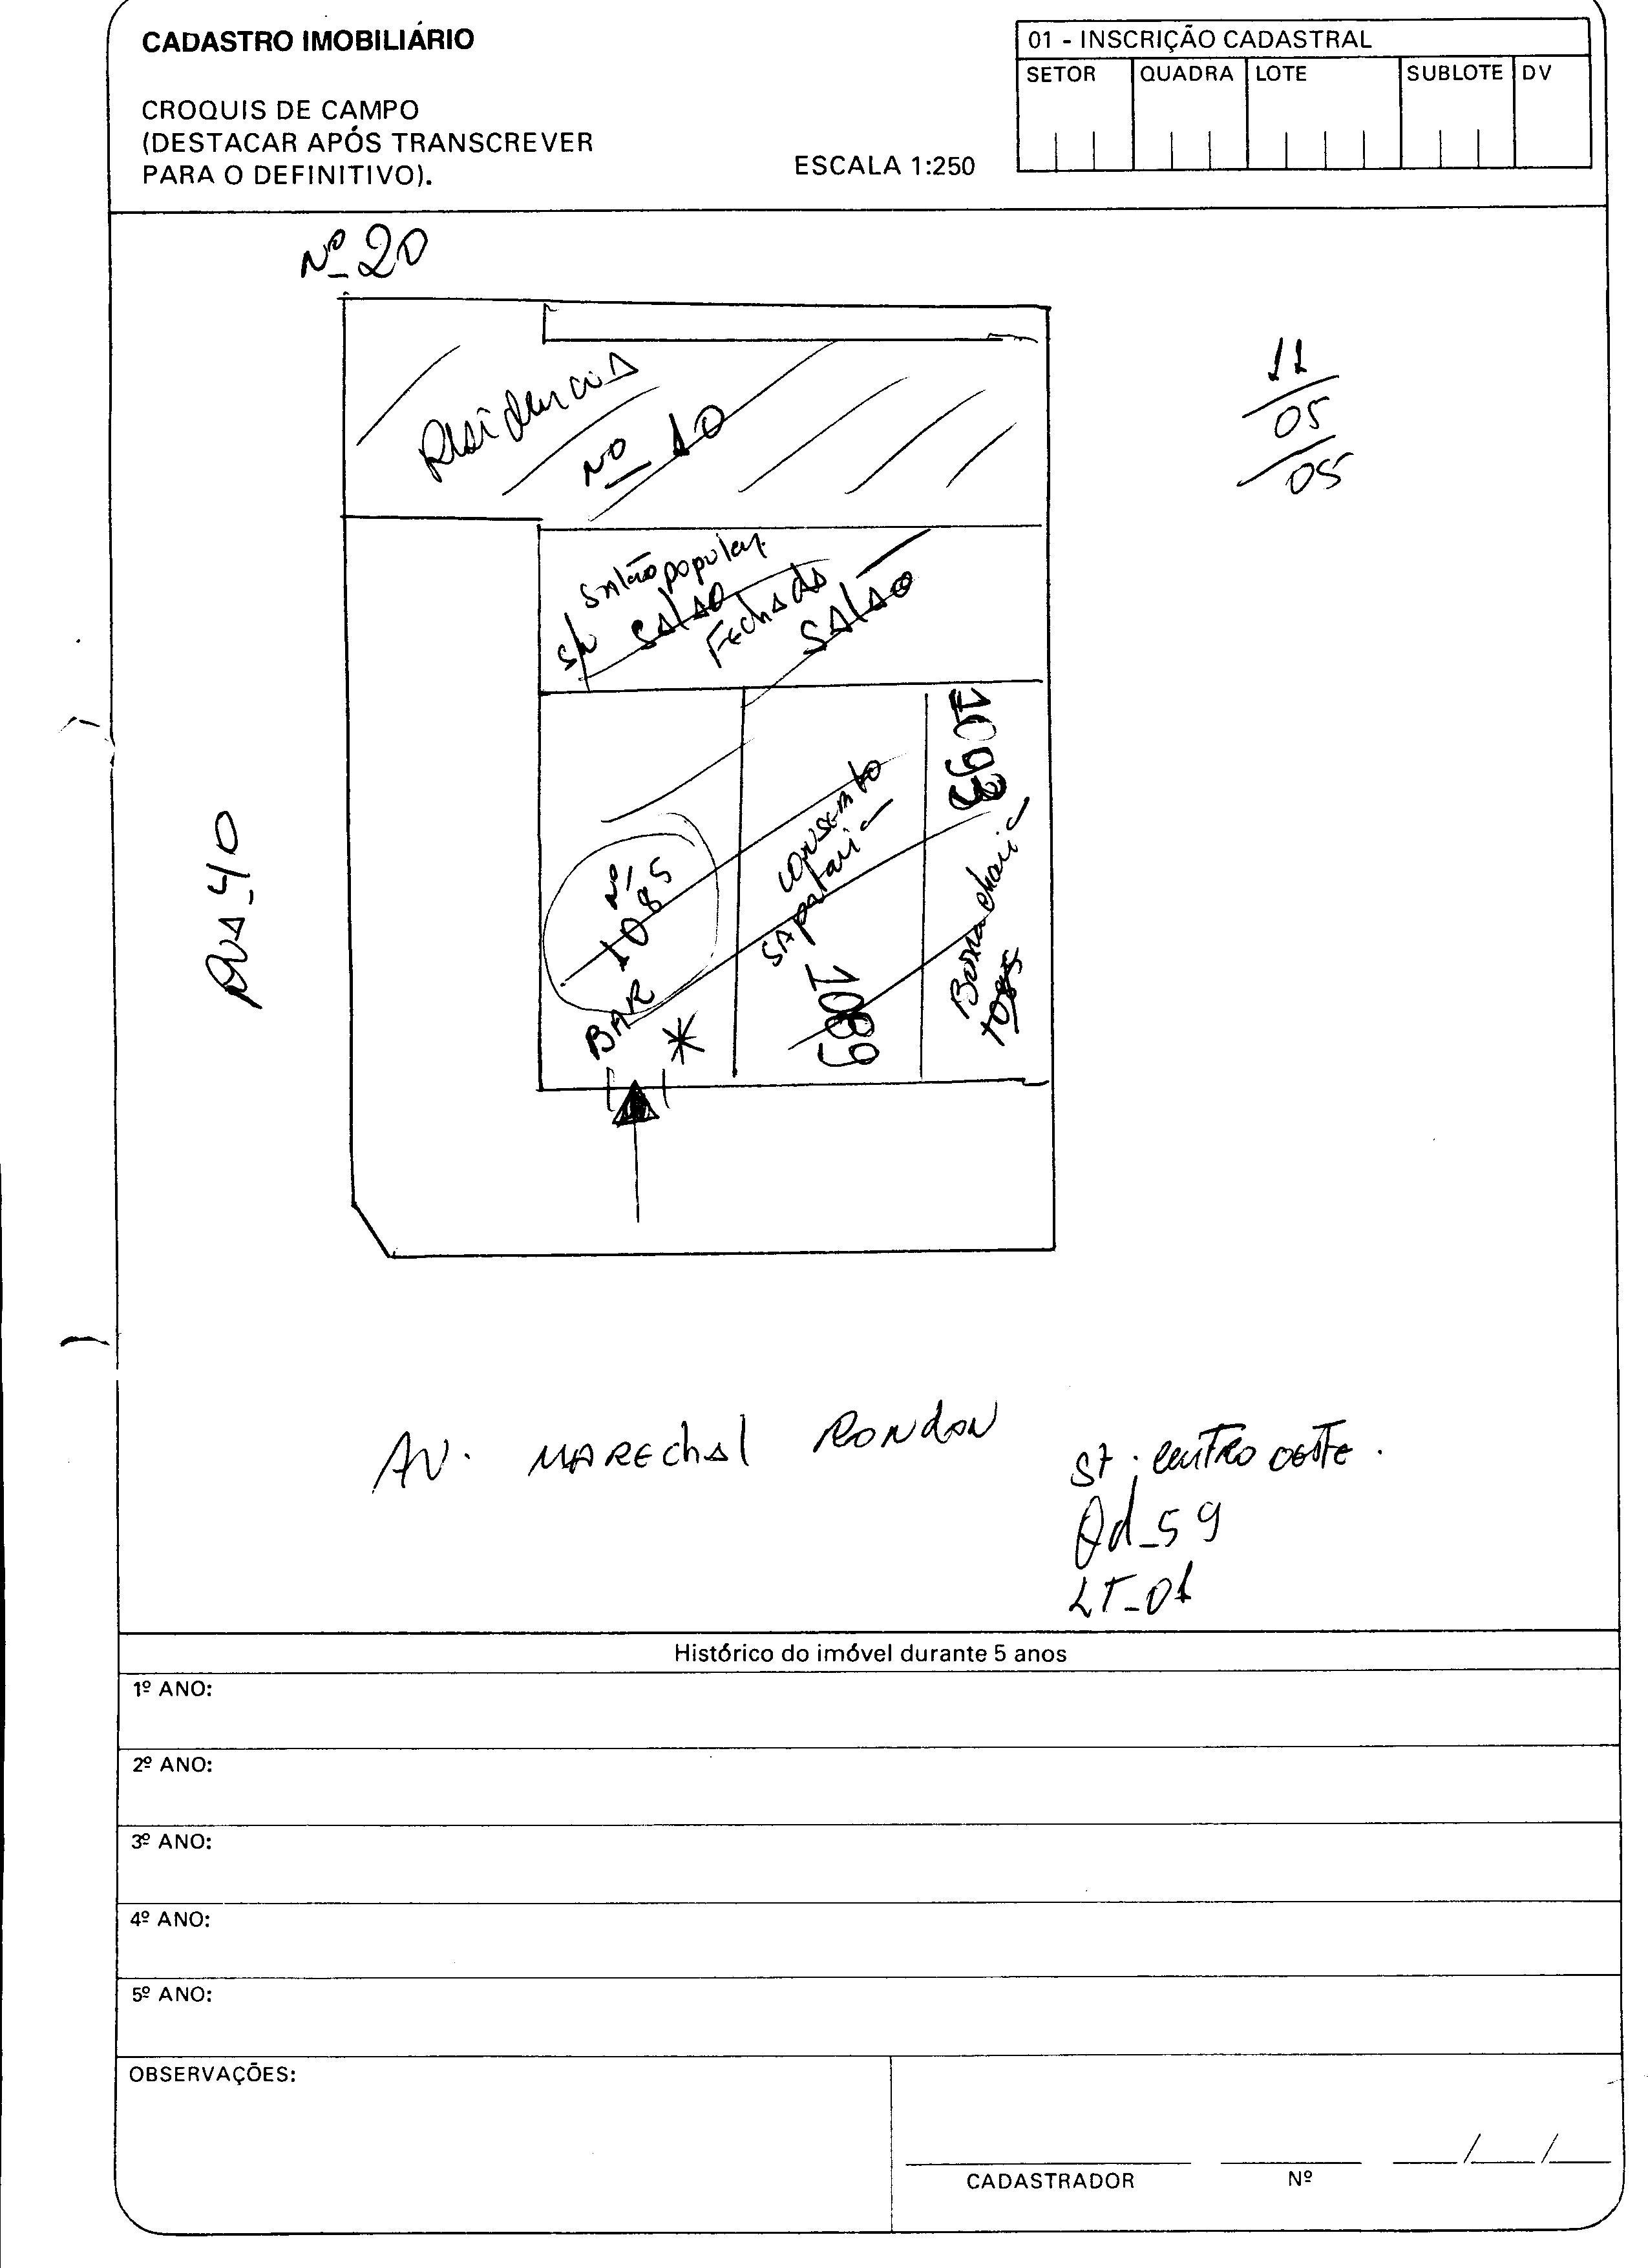 CADASTRO IMOBILIÁRIO
CROQUIS DE CAMPO
(DESTACAR APÓS TRANSCREVER
PARA O DEFINITIVO).
ESCALA 1:250
01 - INSCRIÇÃO CADASTRAL
SETOR QUADRA LOTE SUBLOTE DV
Nº 20
11
05
05
Residencia
Nº 10
Salão popular
S/N SALAO
Fechado
SALAO
1093
Nº
1085
BAR
*
conserto
sapataria
1089
Borracharia
1085
RUA_40
AV. MAREchal RONdON
St. CENTRO OESTE.
Qd_59
LT_01
Histórico do imóvel durante 5 anos
1º ANO:
2º ANO:
3º ANO:
4º ANO:
5º ANO:
OBSERVAÇÕES:
CADASTRADOR Nº